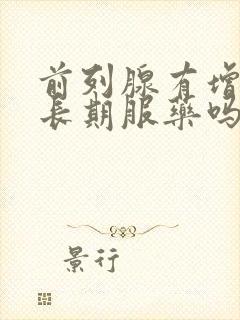 前列腺有增
长期服药吗
景行